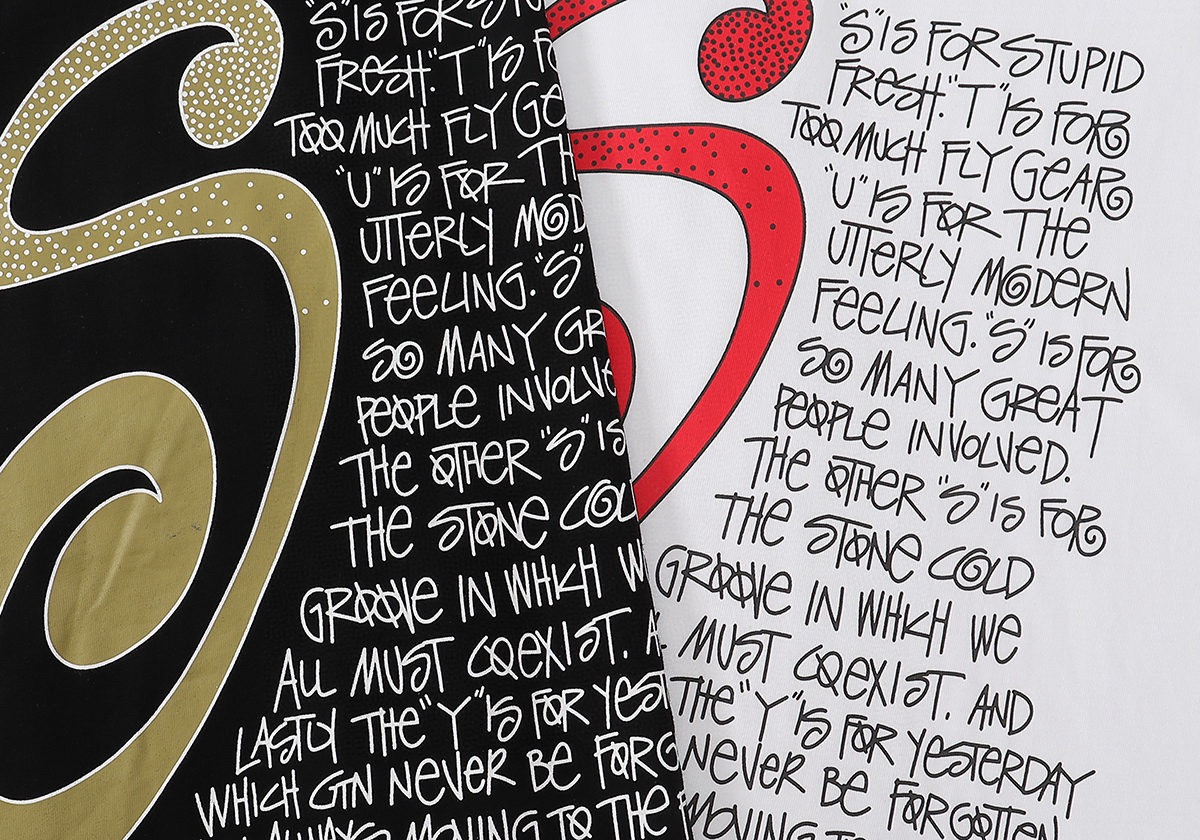 "S" IS FOR STUP
FRESH. "T" IS F
TOO MUCH FLY GE
"U" IS FOR TH
UTTERLY MOD
FEELING. "S"
SO MANY GR
PEOPLE INVOLVE
THE OTHER "S" IS
THE STONE COL
GROOVE IN WHICH W
ALL MUST COEXIST. A
LASTLY THE "Y" IS FOR YEST
WHICH CAN NEVER BE FORG
ALWAYS MOVING TO THE
"S" IS FOR STUPID
FRESH. "T" IS FOR
TOO MUCH FLY GEAR
"U" IS FOR THE
UTTERLY MODERN
FEELING. "S" IS FOR
SO MANY GREAT
PEOPLE INVOLVED.
THE OTHER "S" IS FOR
THE STONE COLD
GROOVE IN WHICH WE
MUST COEXIST. AND
THE "Y" IS FOR YESTERDAY
NEVER BE FORGOTTEN
MOVING TO